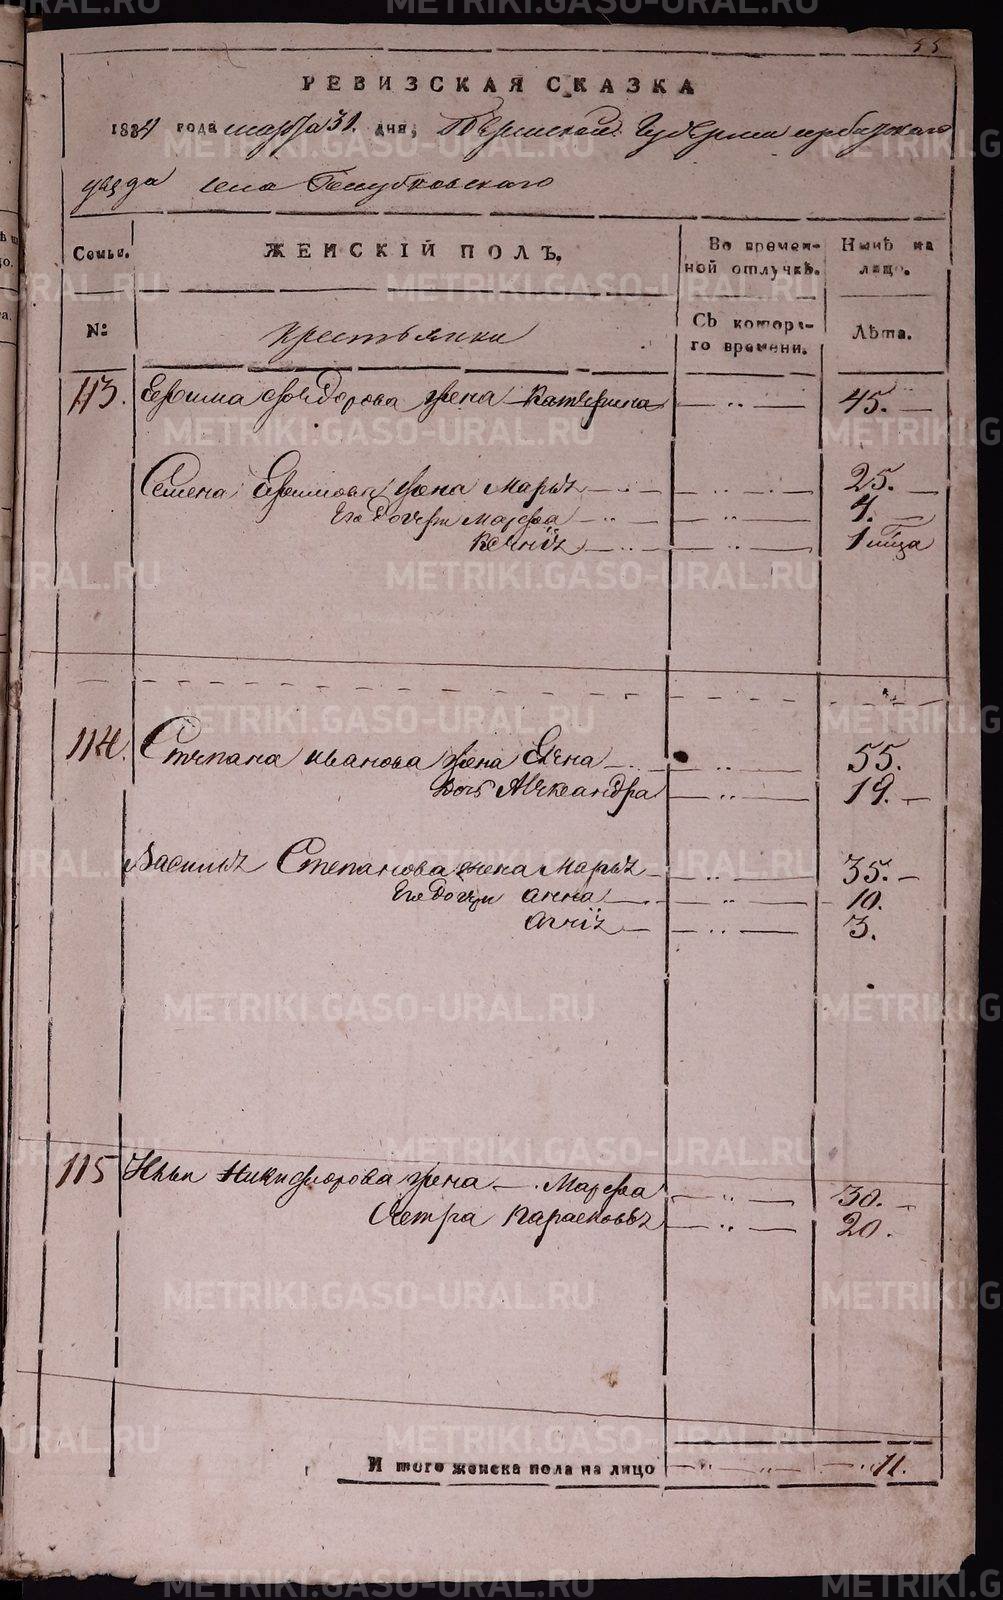 55
РЕВИЗСКАЯ СКАЗКА
1834 года марта 31. дня, Пермской Губернии ирбитскаго
уезда села
Семьи. ЖЕНСКІЙ ПОЛЪ. Во времен- Нынѣ на
ной отлучкѣ. лицо.
№ крестьянки Съ котора- Лѣта.
го времени.
113. Ефима Федорова жена Катерина — „ — 45. —
Семена Ефимова жена Марья — „ — 25. —
Его дочери Марфа — „ — 4. —
Ксенія — „ — 1
114. Степана иванова жена Елена — „ — 55.
дочь Александра — „ — 19. —
Василья Степанова жена Марья — „ — 35. —
Его дочери анна — „ — 10.
агнія — „ — 3.
115 Ильи Никифорова жена — Марфа — „ — 30. —
сестра парасковья — „ — 20.
И того женска пола на лицо — „ — „ — 11.
METRIKI.GASO-URAL.RU